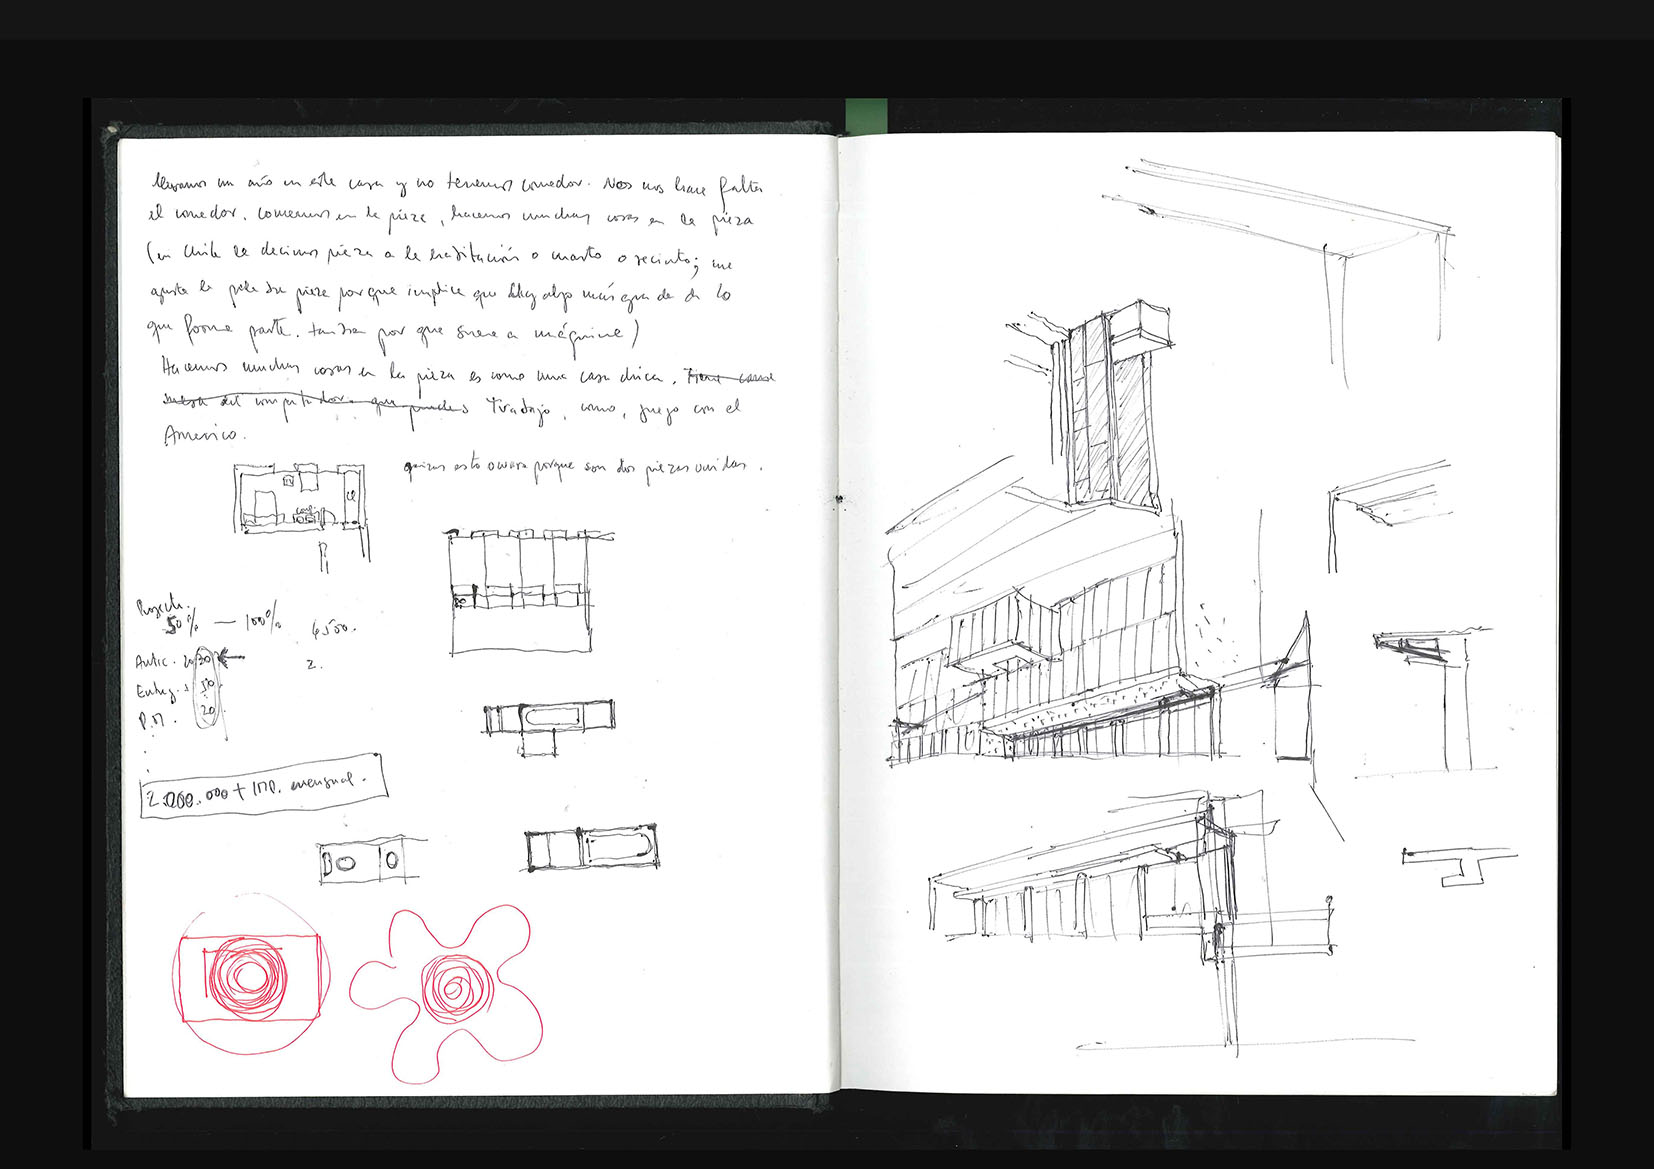 llevamos un año en esta casa y no tenemos comedor. No nos hace falta
el comedor. comemos en la pieza, hacemos muchas cosas en la pieza
(en Chile le decimos pieza a la habitación o cuarto o recinto; me
gusta la pieza porque implica que hay algo más grande de lo
que forma parte. también por que suena a máquina)
Hacemos muchas cosas en la pieza es como una casa chica. Tiene
mesa del computador que puedes Trabajo, como, juego con el
Americo.
quizas esto ocurra porque son dos piezas unidas.
TV
cl
50% — 100% 6500.
Antic. 30
2.
Entreg. 50
P.M. 20
2.000.000 + IMP. mensual.